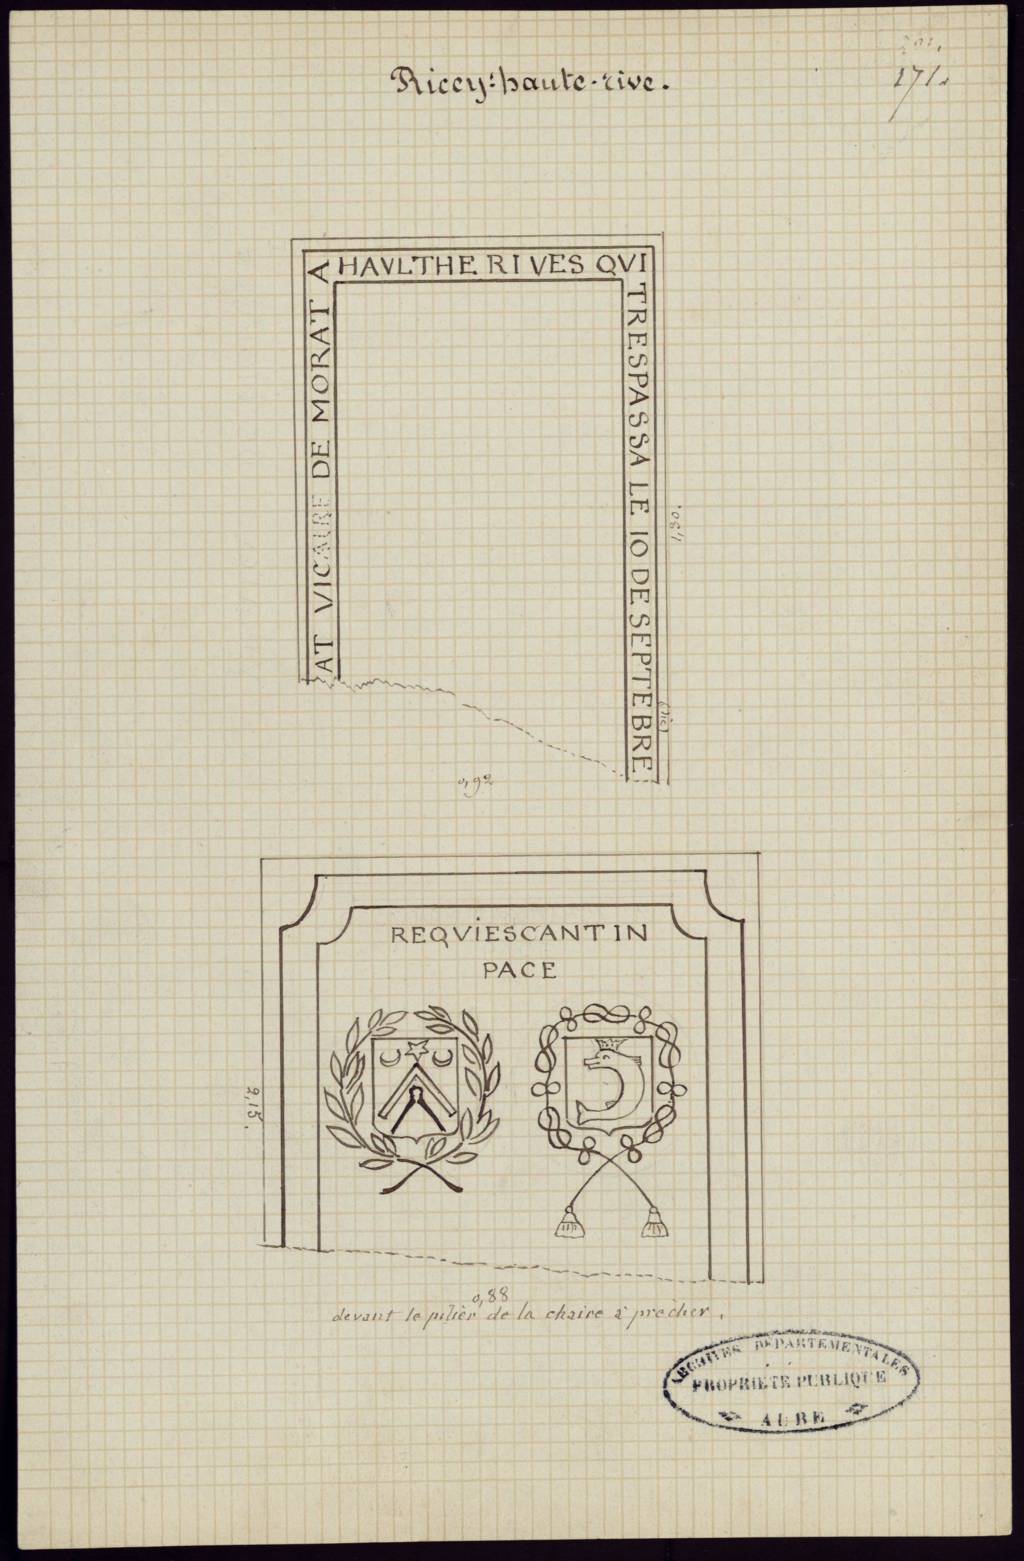 171.
Ricey-haute-rive.
AT VICAIRE DE MORAT A
HAVLTHE RIVES QVI
TRESPASSA LE 10 DE SEPTEBRE
(sic)
0,92
REQViESCANT IN
PACE
2,15.
0,88
devant le pilier de la chaire à prêcher.
ARCHIVES DÉPARTEMENTALES
PROPRIÉTÉ PUBLIQUE
AUBE